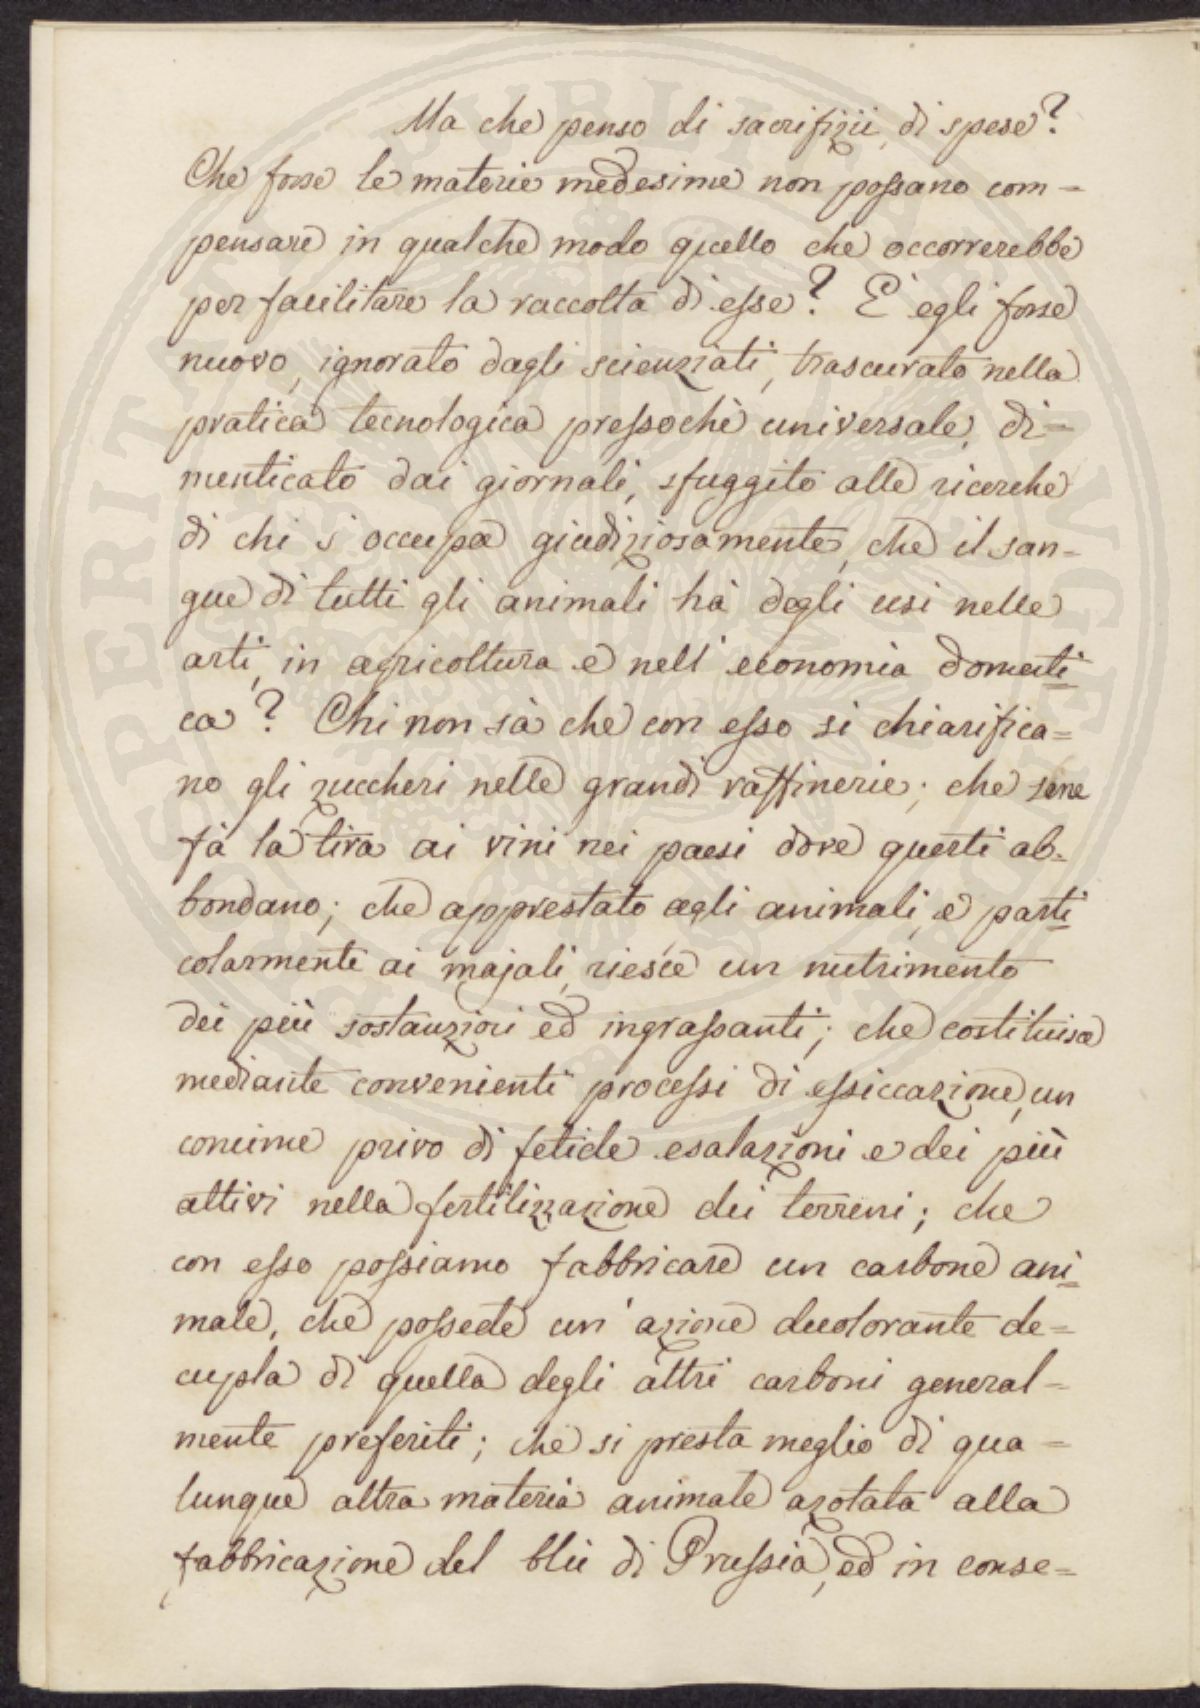 Ma che penso di sacrifizii, di spese?
Che forse le materie medesime non possano com=
pensare in qualche modo quello che occorrerebbe
per facilitare la raccolta di esse? E' egli forse
nuovo, ignorato dagli scienziati, trascurato nella
pratica tecnologica pressochè universale, di=
menticato dai giornali, sfuggito alle ricerche
di chi s'occupa giudiziosamente, che il san=
gue di tutti gli animali hà degli usi nelle
arti, in agricoltura e nell'economia domesti
ca? Chi non sà che con esso si chiarifica=
no gli zuccheri nelle grandi raffinerie; che sene
fà la tira ai vini nei paesi dove questi ab=
bondano; che apprestato agli animali, e parti
colarmente ai majali, riesce un nutrimento
dei più sostanziosi ed ingrassanti; che costituisce
mediante convenienti processi di essiccazione, un
concime privo di fetide esalazioni e dei più
attivi nella fertilizzazione dei terreni; che
con esso possiamo fabbricare un carbone ani
male, che possede un'azione decolorante de=
cupla di quella degli altri carboni general=
mente preferiti; che si presta meglio di qua=
lunque altra materia animale azotata alla
fabbricazione del blù di Prussia, ed in conse=